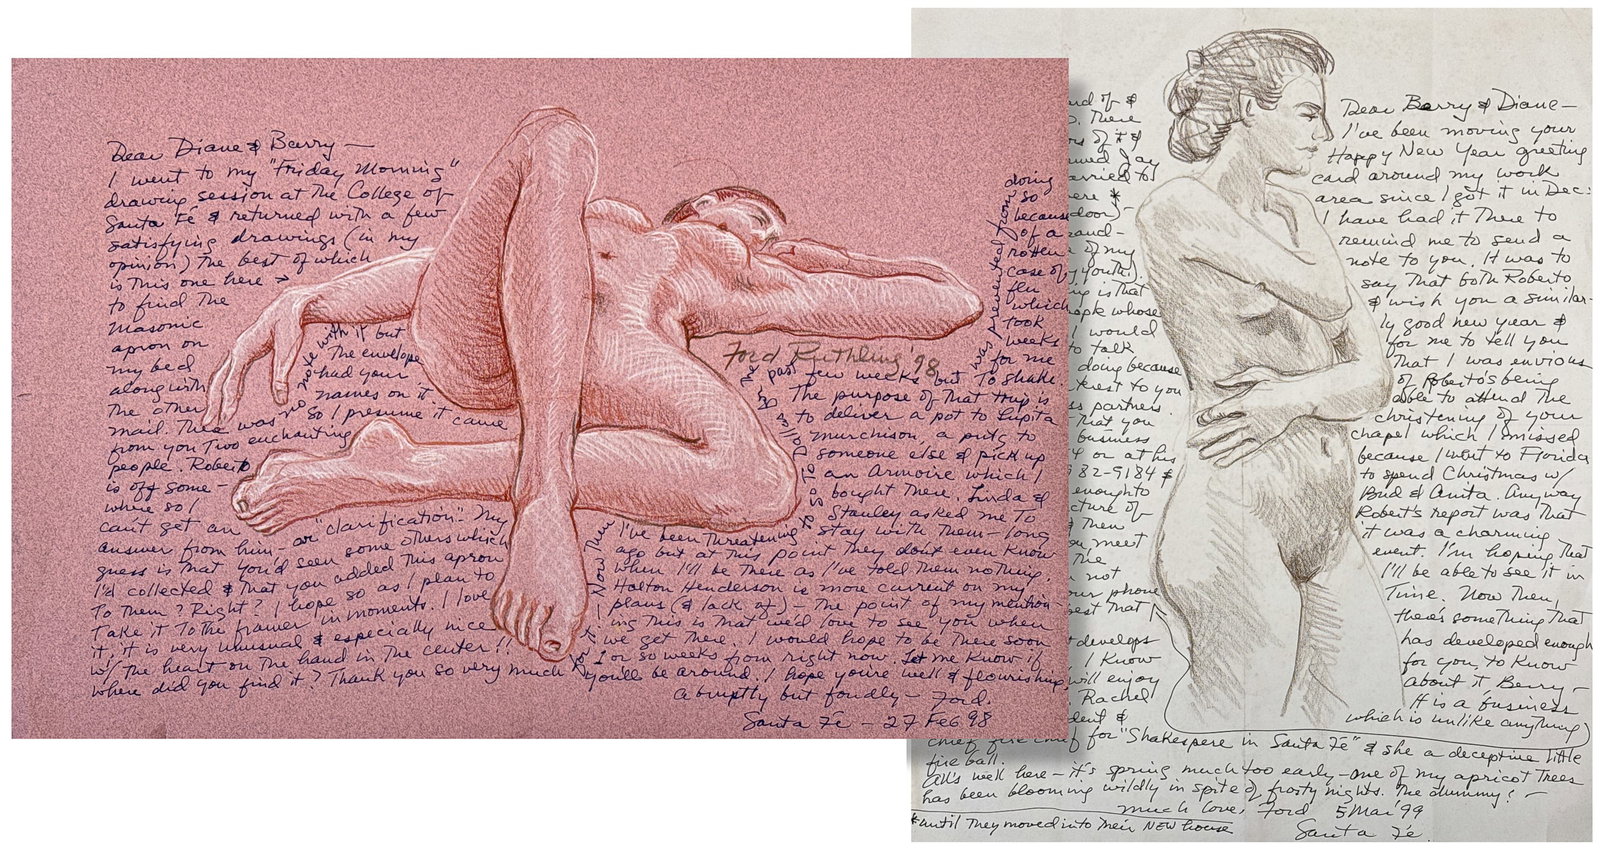 Dear Diane & Barry —
I went to my "Friday Morning"
drawing session at the College of
Santa Fé & returned with a few
satisfying drawings (in my
opinion) The best of which
is this one here →
to find the
Masonic
apron on
my bed
along with
the other
mail. There was no note with it but
The envelope
had your
names on it
So I presume it came
from you Two enchanting
people. Roberto
is off some-
where so I
can't get an
answer from him — or "clarification". My
guess is that you'd seen some others which
I'd collected & that you added This apron
To them? Right? I hope so as I plan to
Take it To the framer in moments. I love
it, it is very unusual & especially nice
w/ the heart on the hand in the center!!
where did you find it? Thank you so very much
for it. — Now then
I've been threatening to go to Dallas for the past few weeks but
was prevented from
doing
so
because
of a
rotten
case of
flu
which
took
weeks
for me
to shake.
The purpose of that trip is
to deliver a pot to Lupita
Murchison, a putg to
someone else & pick up
an Armoire which I
bought there. Linda &
Stanley asked me To
stay with them — long
ago but at this point They dont even know
when I'll be there as I've told them nothing.
Halton Henderson is more current on my
plans (& lack of) — The point of my mention-
ing this is that we'd love to see you when
we get there. I would hope to be there soon
1 or so weeks from right now. Let me know if
you'll be around. I hope you're well & flourishing,
abruptly but fondly — Ford.
Santa Fe — 27 Feb 98
Ford Ruthling '98
Dear Barry & Diane —
I've been moving your
Happy New Year greeting
card around my work
area since I got it in Dec:
I have had it There to
remind me to send a
note to you. It was to
say That both Roberto
& I wish you a similar-
ly good new year &
for me to tell you
That I was envious
of Roberto's being
able to attend The
christening of your
chapel which I missed
because I went to Florida
to spend Christmas w/
Bud & Anita. Anyway
Robert's report was That
it was a charming
event. I'm hoping That
I'll be able to see it in
Time. Now Then,
there's something That
has developed enough
for you, to know
about it Berry —
It is a business
which is unlike anything
of &
There
of it &
day
married to
here *
door) —
and —
of my
youth).
is that
whose
I would
to talk
doing because
interest to you
partners.
that you
business
or at his
982-9184 &
enough to
picture of
& Then
you meet
The
not
your phone
best that
develops
I know
will enjoy
Rachel
&
chief fire chief for "Shakespere in Santa Fé" & she a deceptive little
fire ball.
All's well here — it's spring much too early — one of my apricot Trees
has been blooming wildly in spite of frosty nights. The dummy! —
much love, Ford 5 Mar '99
Santa Fe.
*until They moved into Their NEW house